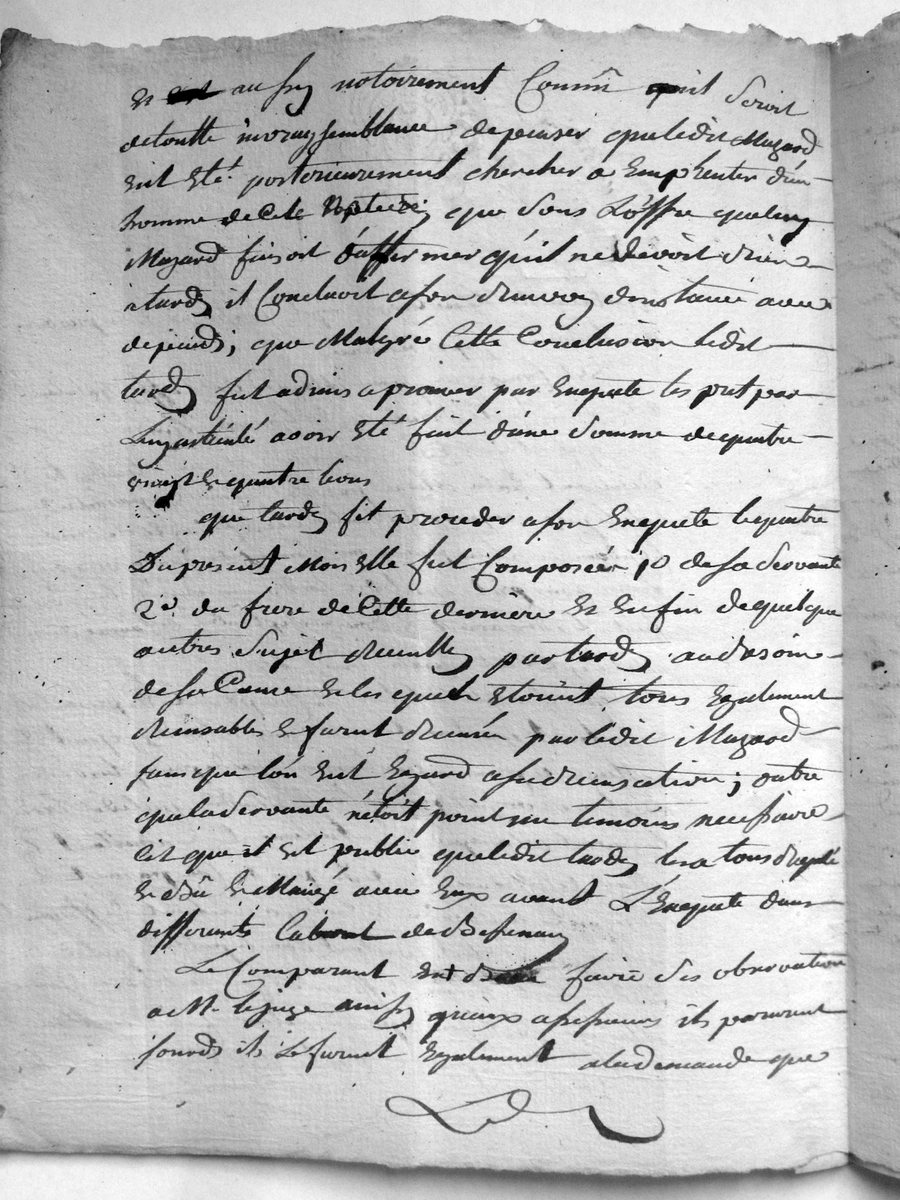 et aussy notoirement Connû quil Seroit
detoutte invraysemblance depenser queledit Mazard
eut eté posterieurement chercher a Emprunter d'un
homme de Cete que Sous L'offre queluy
Mazard faisoit d'affirmer qu'il nedevoit Rien
atardy il Concluoit ason Renvoy d'instance avec
depends; que Malgré Cette Conclusion ledit
tardy fut admis a prouver par Enquete les pret par
Luy avoir eté fait d'une Somme dequatre
vingt et quatre livres
que tardy fit proceder ason Enquete lequatre
Dupresent Mois elle fut Composée 1º de Sa Servante
2º du frere de Cette derniere et Enfin dequelque
autres Sujet par tardy au besoin
de Sa Cause et les quels etoient tous Egalement
Recusables et furent Recusés par ledit Mazard
sans que lon eut Egard a sa Recusation; outre
quelaservante n'étoit point un temoins necessaire
C'est que il est public queledit tardy les a tous
et Bû et Mangé avec Eux avant L'Enquete dans
differents Cabaret de
Le Comparant faire Des observation
a Mr le juge ainsy qu'aux assesseurs ils parurent
sourds ils Le furent Egalement alademande que